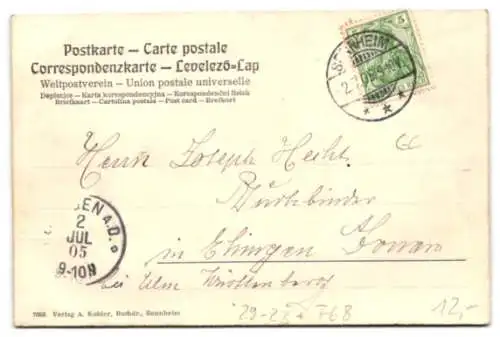 Postkarte – Carte postale
Correspondenzkarte – Levelező-Lap
Weltpostverein – Union postale universelle
Dopisnice – Karta korespondencyjna – Korespondenční lístek
Briefkaart – Cartolina postale – Post card – Brefkort
5
2
Herrn Joseph Hecht.
Buchbinder
in Ehingen Donau
bei Ulm Württemberg
EN A.D.
2
JUL
05
9-10N
7088 Verlag A. Kohler, Buchdr., Sennheim
12,-